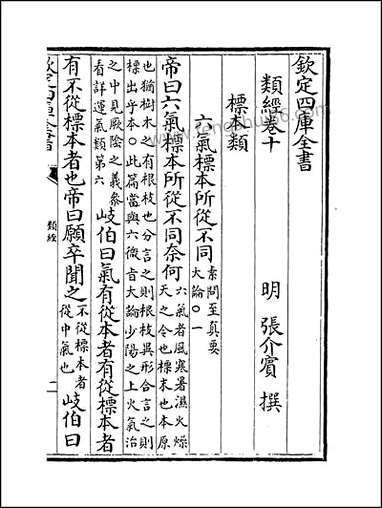 欽定四庫全書
類經卷十
明 張介賓 撰
標本類
六氣標本所從不同 素問至真要大論○一
帝曰六氣標本所從不同奈何 六氣者風寒暑濕火燥天之令也標末也本原
也猶樹木之有根枝也分言之則根枝異形合言之則
標出乎本○此篇當與六微旨大論少陽之上火氣治
之中見厥陰之義參看詳運氣類第六 岐伯曰氣有從本者有從標本者
有不從標本者也帝曰願卒聞之 不從標本者從中氣也 岐伯曰
類經
二